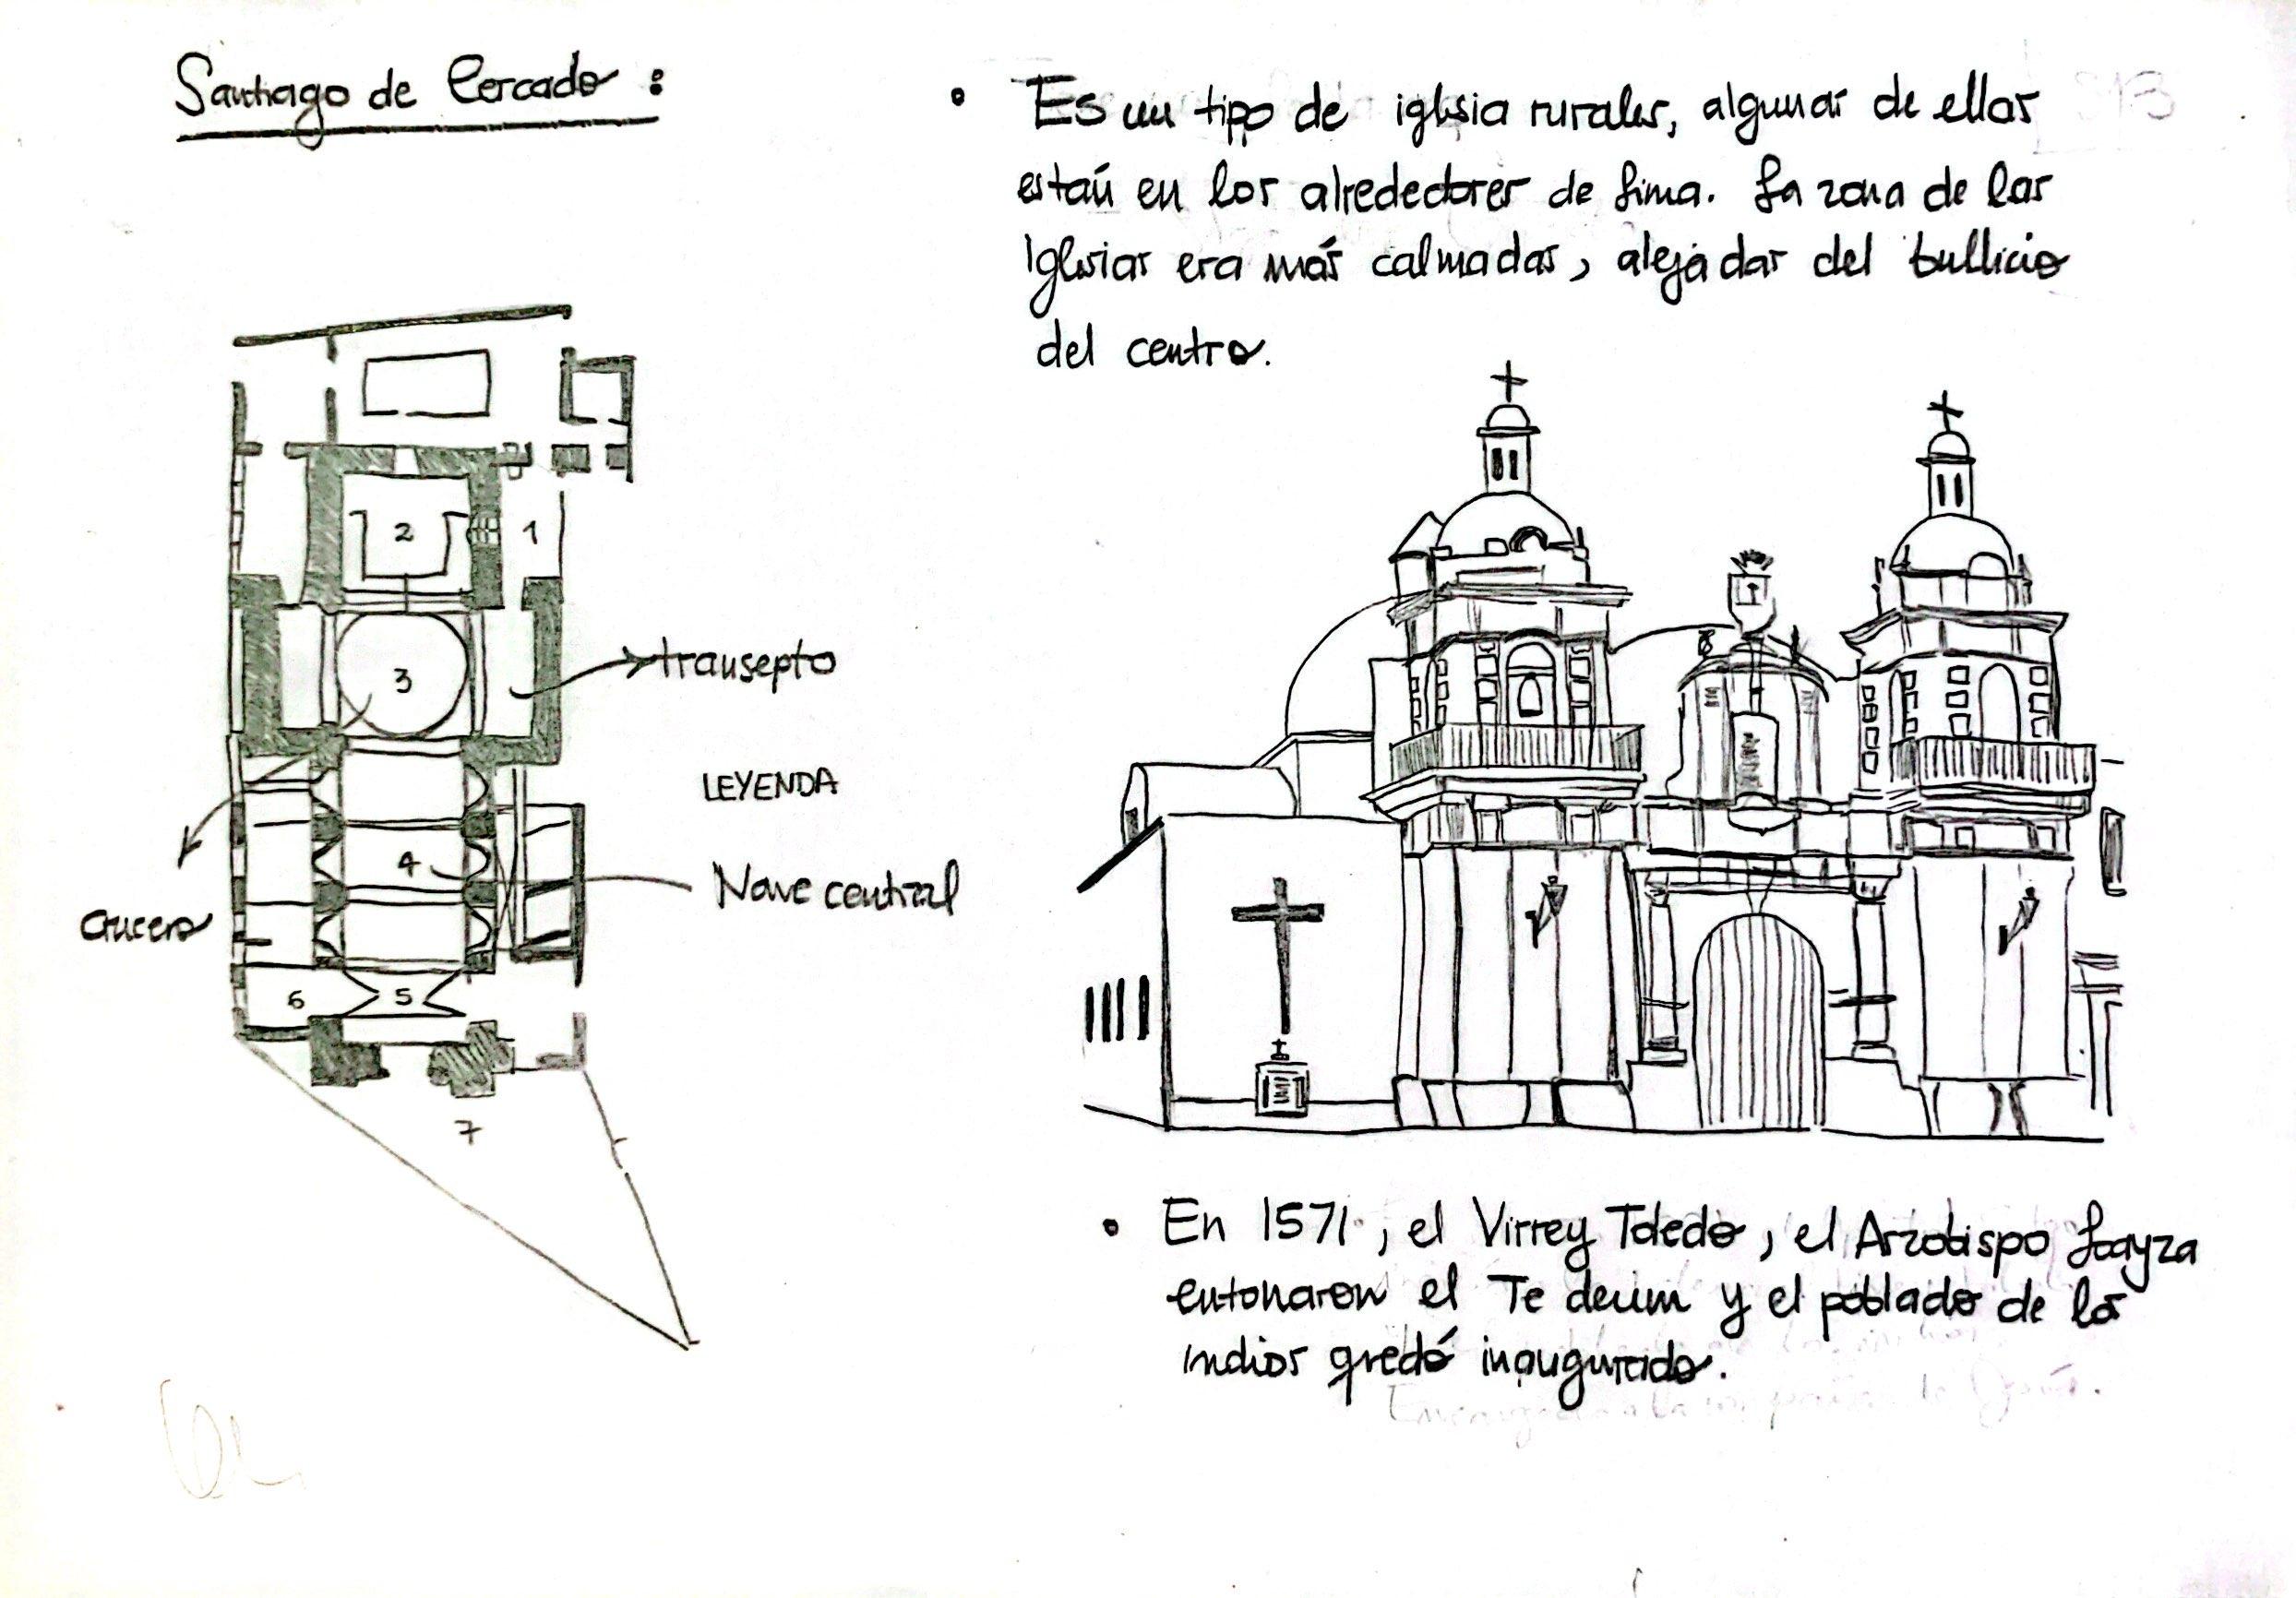 Santiago de Cercado :
• Es un tipo de iglsia rurales, algunas de ellas
están en los alrededores de Lima. La zona de las
Iglesias era más calmadas, alejadas del bullicio
del centro.
2
1
3
transepto
LEYENDA
4
Nave central
crucero
6
5
7
• En 1571, el Virrey Toledo, el Arzobispo Loayza
entonaron el Te deum y el poblado de los
indios quedó inaugurado.